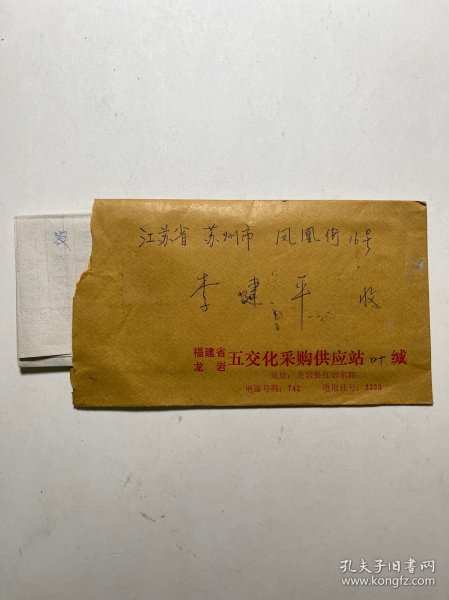 江苏省 苏州市 凤凰街16号
李 健 平 收
福建省
龙 岩 五交化采购供应站 叶 缄
地址：龙岩县红岩东路
电话号码：742 电报挂号：3333
孔夫子旧书网
www.kongfz.com